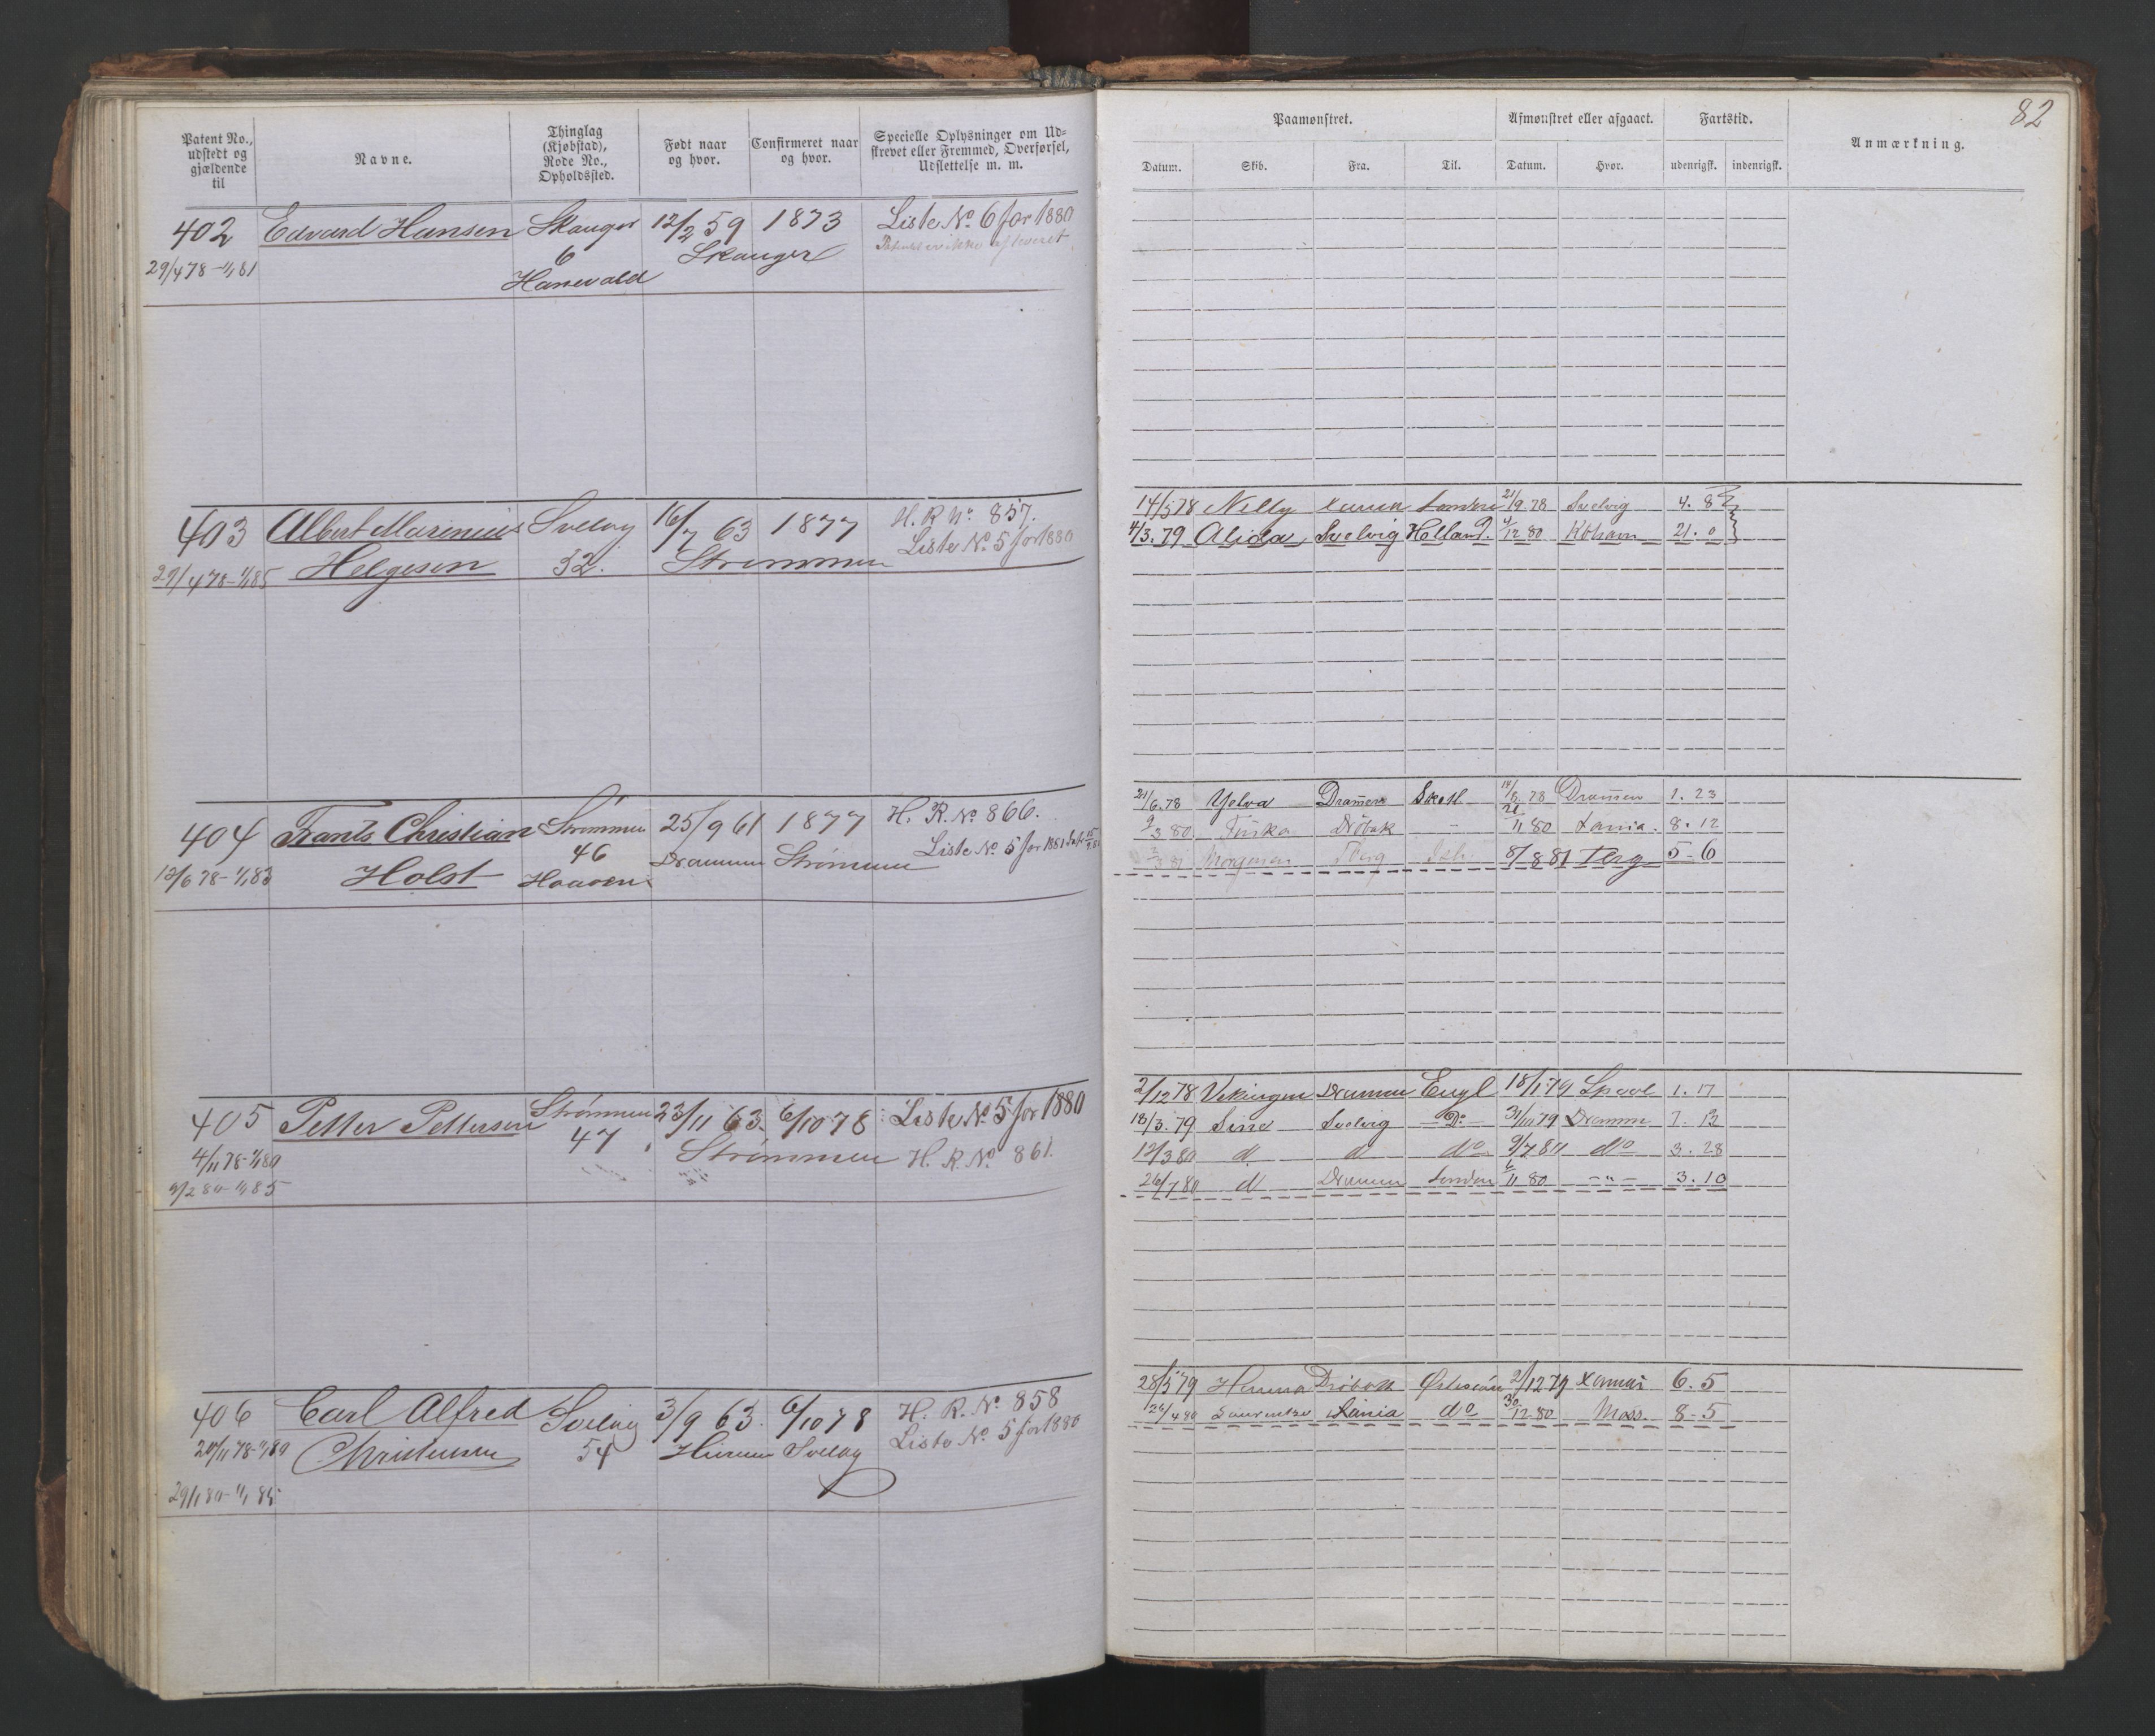 Patent No., udstedt og gjældende til
Navne.
Thinglag (Kjøbstad), Rode No., Opholdssted.
Født naar og hvor.
Confirmeret naar og hvor.
Specielle Oplysninger om Udskrevet eller Fremmed, Overførsel, Udslettelse m. m.
402 Edvard Hansen Skauger 12/2 59 1873 Liste No. 6 for 1880
29/4 78 - 1/1 81 6 Skauger
Hanevald
403 Albert Marinius Svelvig 16/7 63 1877 H. R. No. 857.
29/4 78 - 1/1 85 Helgesen 32. Strømmen Liste No. 5 for 1880
404 Frants Christian Strømmen 25/9 61 1877 H. R. No. 866.
12/6 78 - 1/1 83 Holst 46 Drammen Strømmen Liste No. 5 for 1881
405 Petter Pettersen Strømmen 23/11 63. 6/10 78 Liste No. 5 for 1880
4/11 78 - 1/1 80 47 Strømmen H. R. No. 861.
9/2 80 - 1/1 85
406 Carl Alfred Svelvig 3/9 63. 6/10 78 H. R. No. 858
20/11 78 - 1/1 80 Christensen 54 Hurum Svelvig Liste No. 5 for 1880
29/1 80 - 1/1 85
82
Paamønstret.
Afmønstret eller afgaaet.
Fartstid.
Anmærkning.
Datum. Skib. Fra. Til. Datum. Hvor. udenrigsk. indenrigsk.
14/5 78 Nelly London 21/9 78 Svelvig 4. 8
4/3. 79 Alida Svelvig Holland. 4/12 80 Kbhavn 21. 0
21/6. 78 Yelva Drammen Skotl 14/8 78 Drammen 1. 23
9/3 80 Drøbak - 21/11 80 8. 12
81 8/8 81 5 - 6
2/12 78 Vikingen Drammen Engl 18/1 79 1. 17
18/3. 79 Sine Svelvig Do. 31/10 79 Drammen 7. 13
12/3 80 d. d. do 9/7 80 do 3. 28
26/7 80 d Drammen London 6/11 80 - " - 3. 10
28/5 79 Drøbak 2/12 79 6. 5
26/4 80 do 30/12 80 Moss. 8 - 5